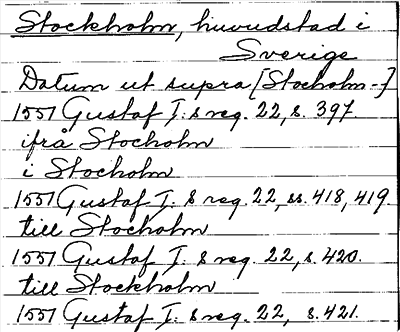 Stockholm, huvudstad i
Sverige
Datum ut supra [Stocholm-]
1557 Gustaf I: s reg. 22, s. 397.
ifrå Stocholm
i Stocholm
1557 Gustaf I: s reg. 22, ss. 418, 419
till Stocholm
1557 Gustaf I: s reg. 22, s. 420.
till Stockholm
1557 Gustaf I: s reg. 22, s. 421.